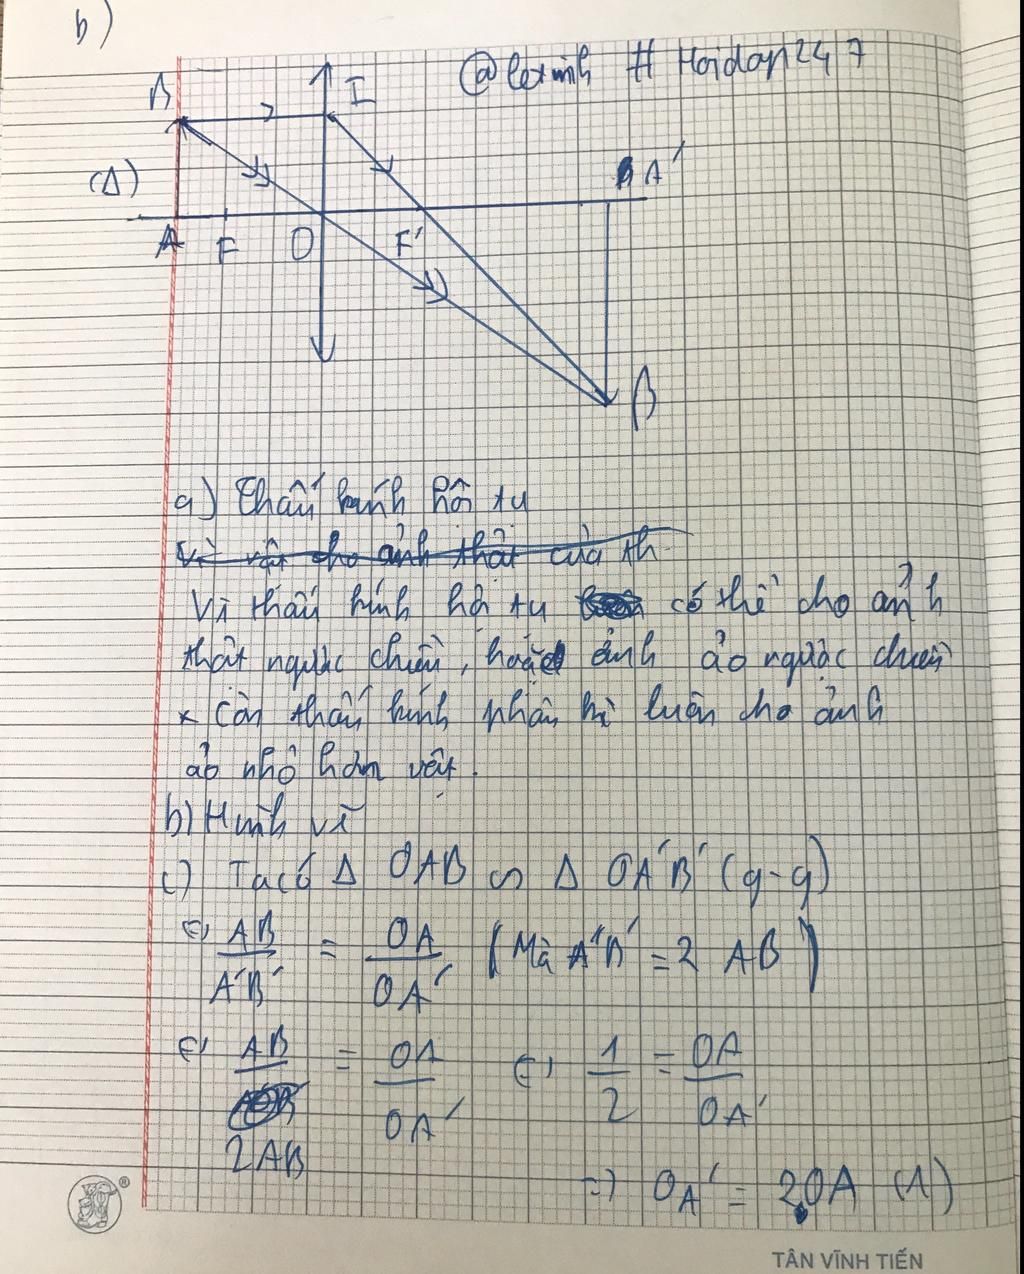 b)
@lexinh # Hoidap247
B I
(Δ) A'
A F O F'
B
a) Thấu kính hội tụ
Vì vật cho ảnh thật của th
Vì thấu kính hội tụ có thể cho ảnh
thật ngược chiều, hoặc ảnh ảo ngược chiều
* Còn thấu kính phân kì luôn cho ảnh
ảo nhỏ hơn vật.
b) Hình vẽ
c) Ta có Δ OAB ∽ Δ OA'B' (g-g)
(=) AB/A'B' = OA/OA' (Mà A'B' = 2 AB)
(=) AB/2AB = OA/OA' (=) 1/2 = OA/OA'
=) OA' = 2.OA (1)
®
TÂN VĨNH TIẾN